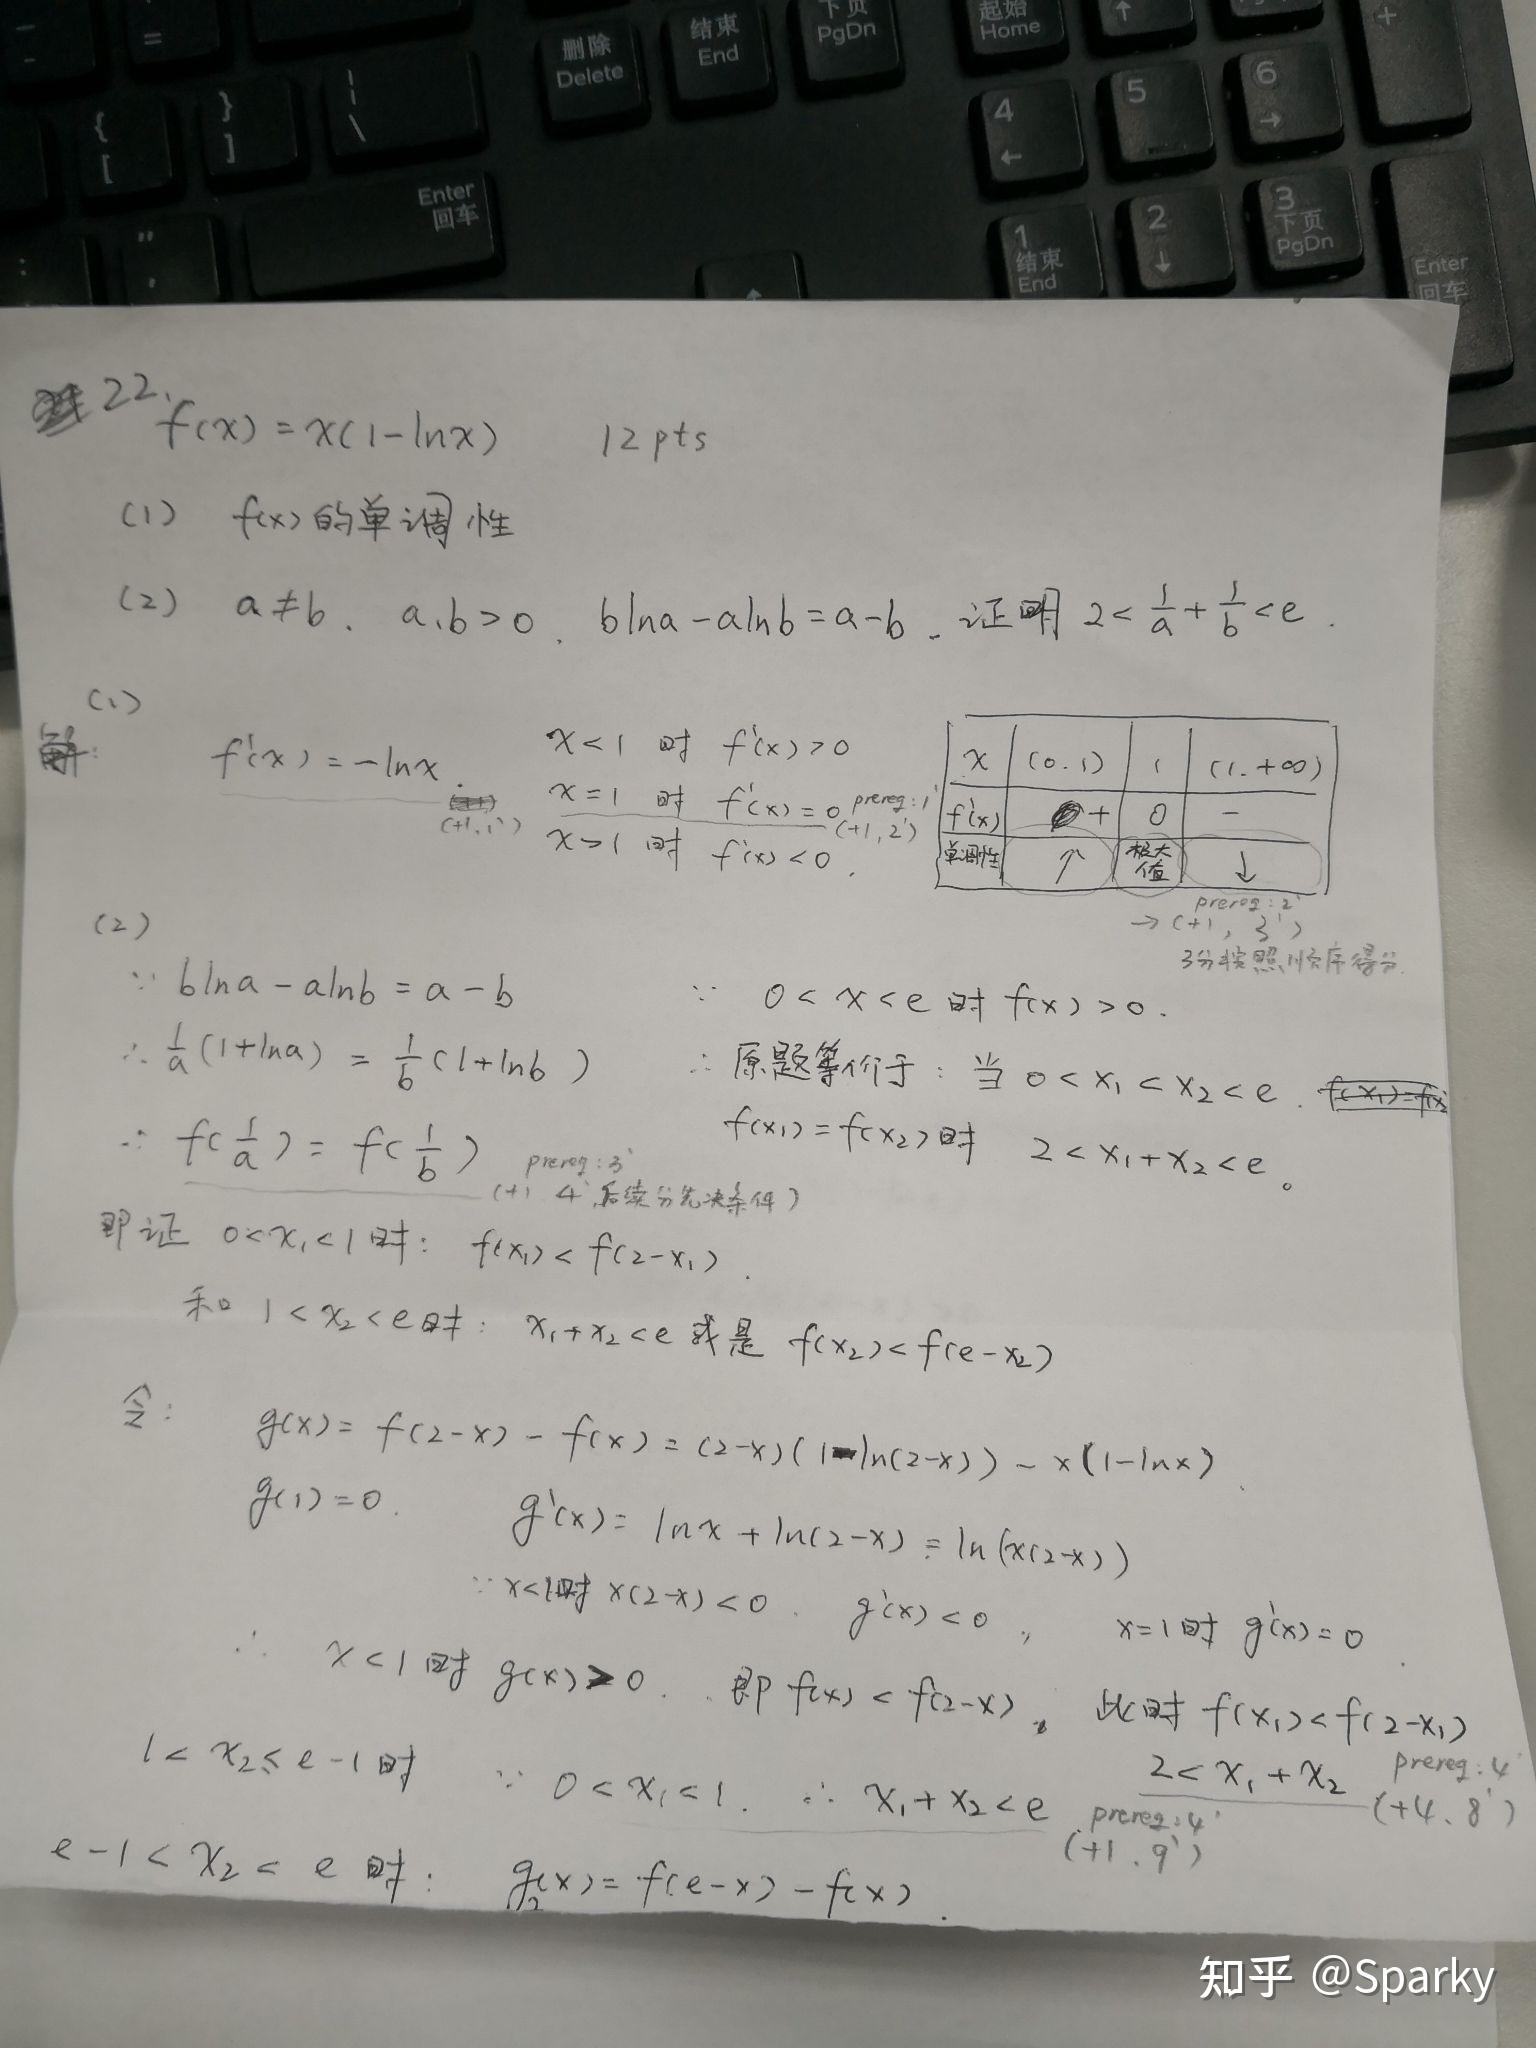 - =
删除 Delete
结束 End
下页 PgDn
起始 Home
↑
PgUp
+
{ [
} ]
| \
4 ←
5
6 →
Enter 回车
: ;
" '
1 结束 End
2 ↓
3 下页 PgDn
Enter 回车
22.
f(x)=x(1-lnx) 12pts
(1) f(x)的单调性
(2) a≠b. a,b>0. blna-alnb=a-b. 证明 2<1/a+1/b<e.
(1)
解:
f'(x)=-lnx.
(+1,1')
x<1 时 f'(x)>0
x=1 时 f'(x)=0 prereq:1'
(+1,2')
x>1 时 f'(x)<0.
x (0.1) 1 (1.+∞)
f'(x) + 0 -
单调性 ↑ 极大值 ↓
prereq:2'
→(+1, 3')
3分按照顺序得分.
(2)
∵ blna-alnb=a-b
∴ 1/a(1+lna)=1/b(1+lnb)
∴ f(1/a)=f(1/b)
prereq:3'
(+1 4' 后续分先决条件)
∵ 0<x<e 时 f(x)>0.
∴ 原题等价于: 当 0<x₁<x₂<e. f(x₁)=f(x₂)
f(x₁)=f(x₂)时 2<x₁+x₂<e。
即证 0<x₁<1时: f(x₁)<f(2-x₁).
和 1<x₂<e时: x₁+x₂<e 或是 f(x₂)<f(e-x₂)
令: g(x)=f(2-x)-f(x)=(2-x)(1-ln(2-x))-x(1-lnx).
g(1)=0. g'(x)=lnx+ln(2-x)=ln(x(2-x))
∵x<1时 x(2-x)<0. g'(x)<0, x=1时 g'(x)=0.
∴ x<1时 g(x)>0. 即 f(x)<f(2-x), 此时 f(x₁)<f(2-x₁)
2<x₁+x₂ prereq:4'
(+4.8')
1<x₂≤e-1时 ∵ 0<x₁<1. ∴ x₁+x₂<e prereq:4'
(+1.9')
e-1<x₂<e时: g₂(x)=f(e-x)-f(x).
知乎 @Sparky